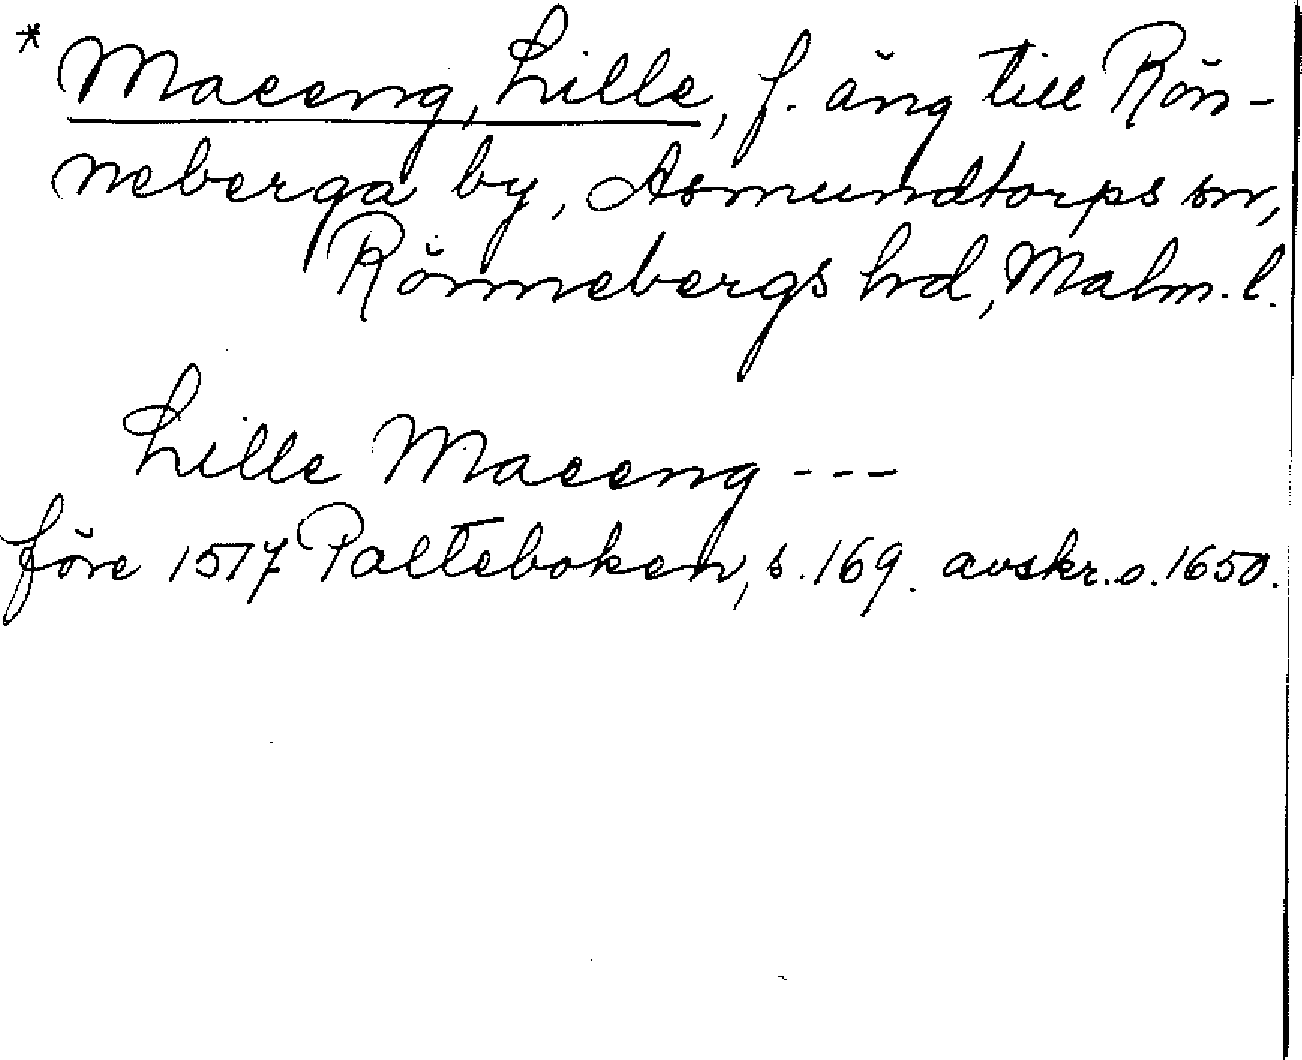 * Maeeng, Lille, f. äng till Rön-
neberga by, Asmundtorps sn,
Rönnebergs hd, Malm. l.
Lille Maeeng ---
före 1517 Palteboken, s. 169. avskr. o. 1650.